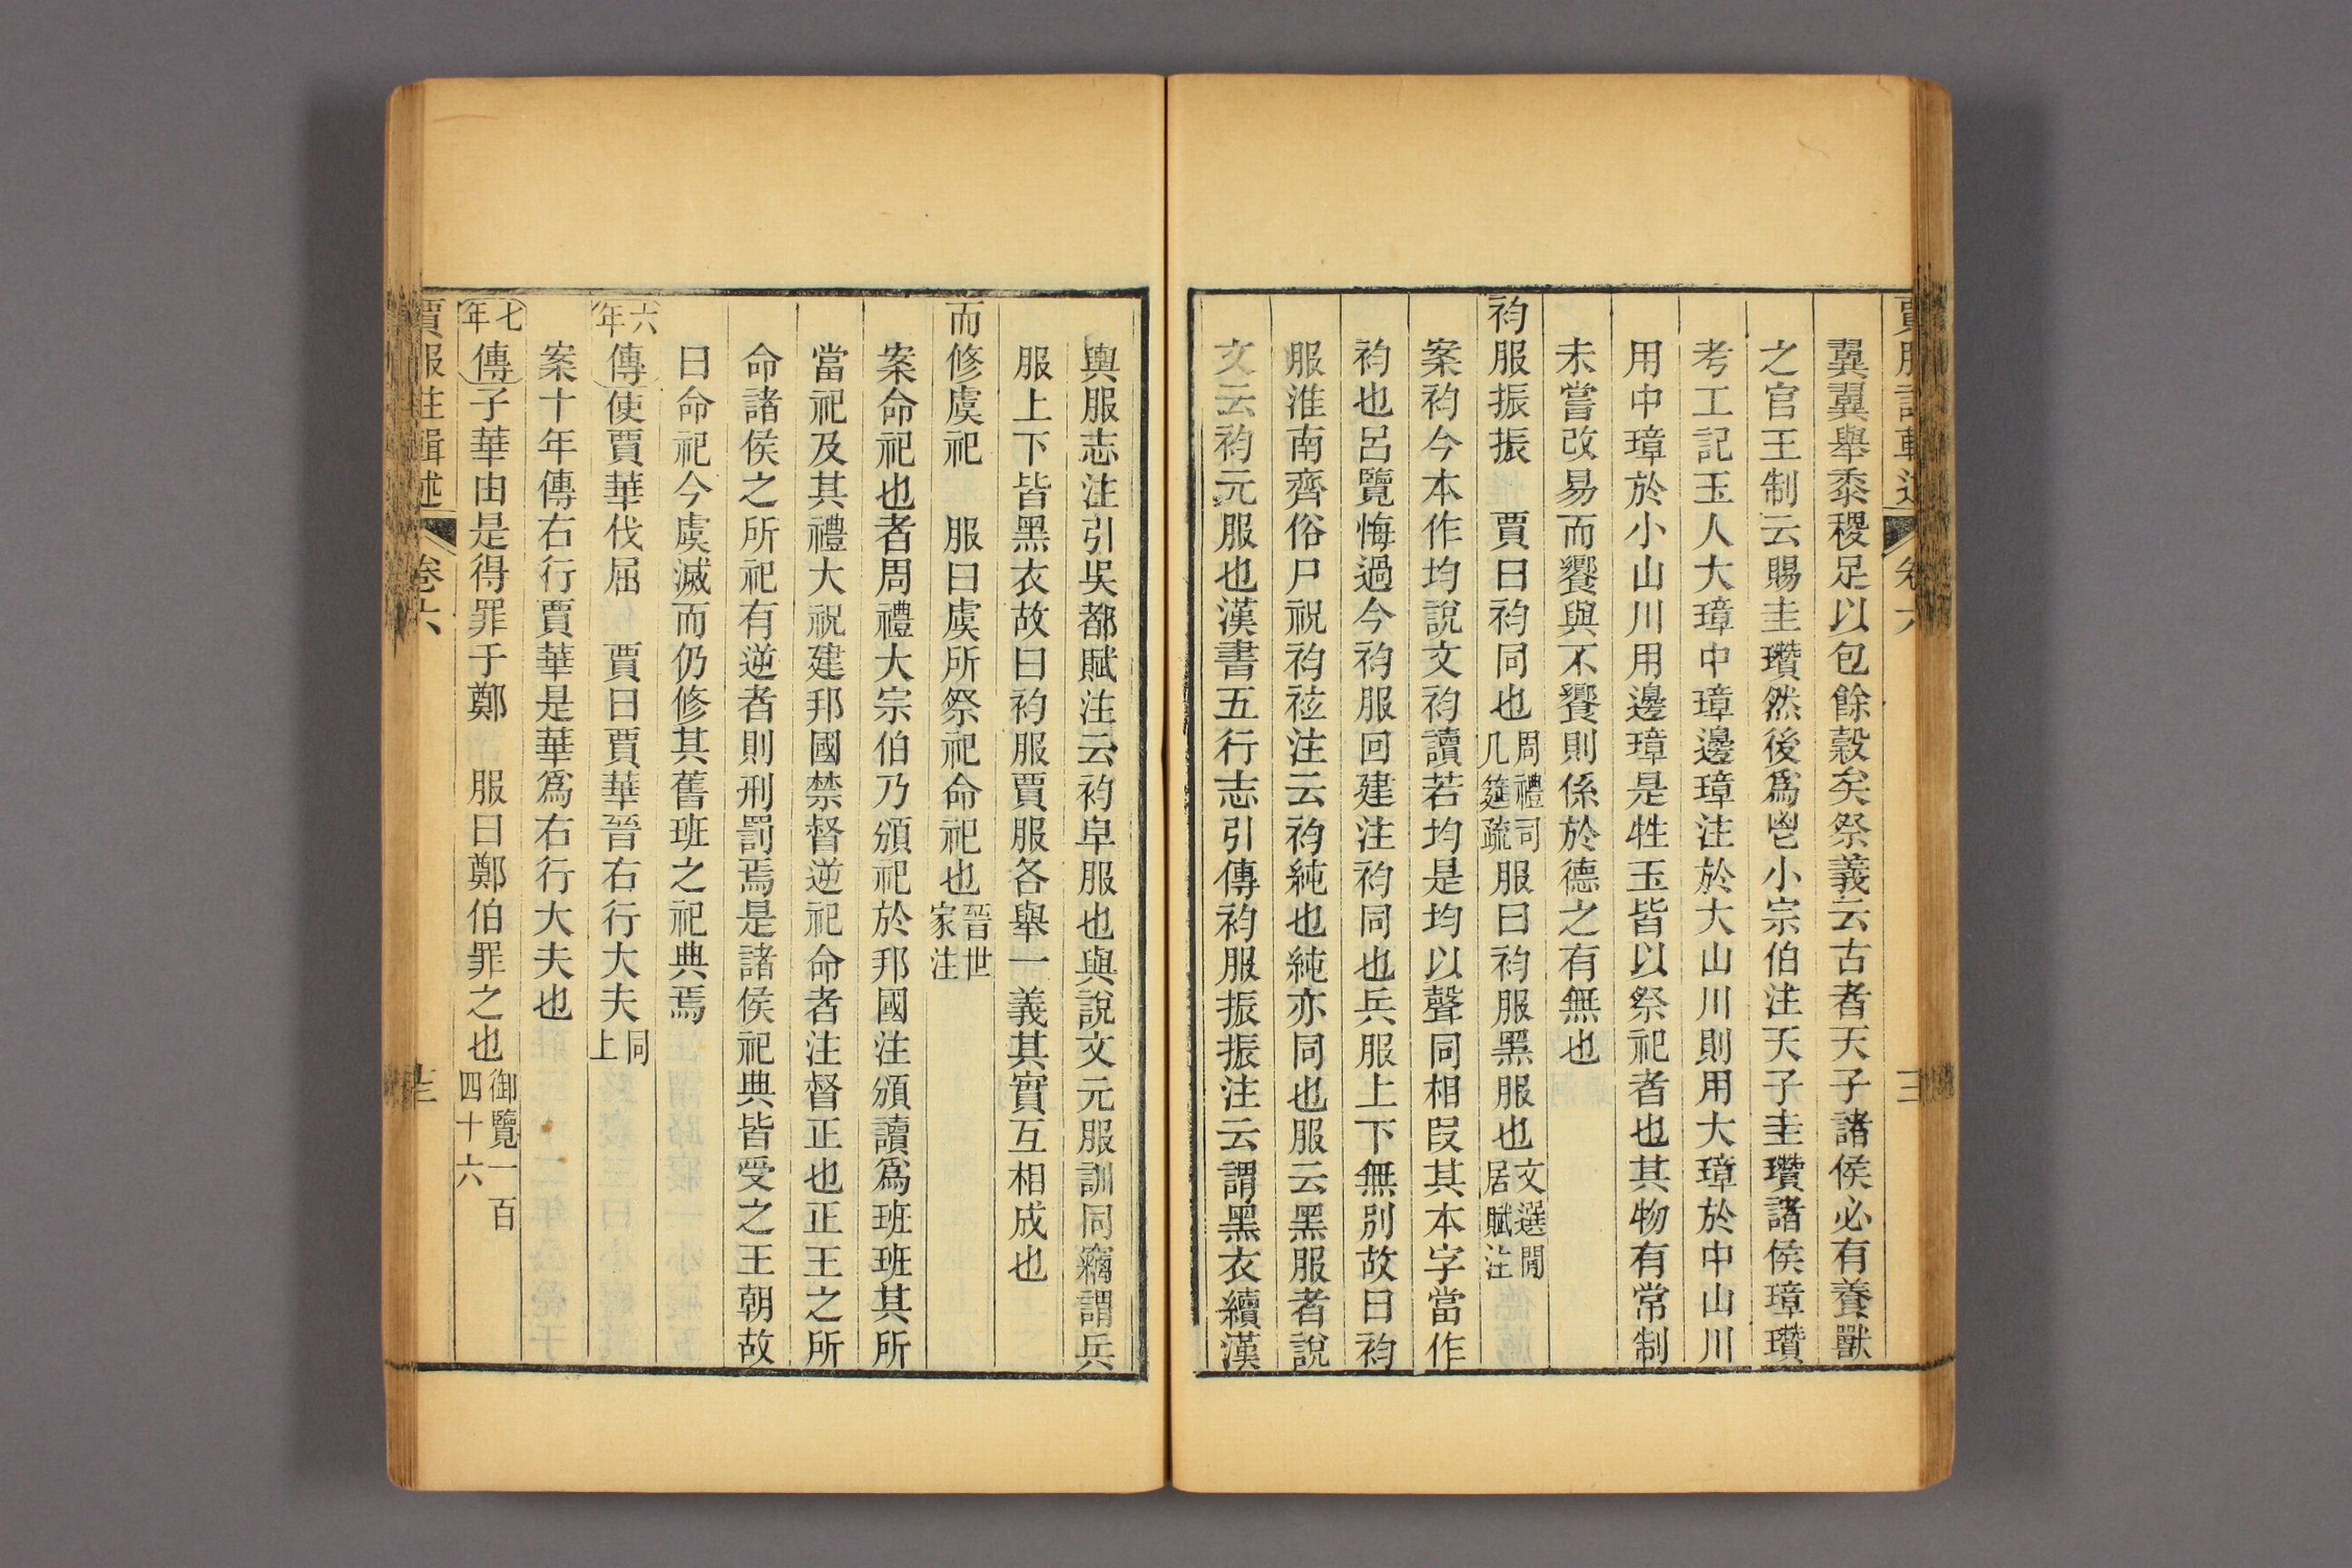 賈服註輯述 卷六 三
翼翼舉黍稷足以包餘穀矣祭義云古者天子諸侯必有養獸
之官王制云賜圭瓚然後爲鬯小宗伯注天子圭瓚諸侯璋瓚
考工記玉人大璋中璋邊璋注於大山川則用大璋於中山川
用中璋於小山川用邊璋是牲玉皆以祭祀者也其物有常制
未嘗改易而饗與不饗則係於德之有無也
袀服振振 賈曰袀同也周禮司几筵疏服曰袀服黑服也文選閒居賦注
案袀今本作均說文袀讀若均是均以聲同相叚其本字當作
袀也呂覽悔過今袀服回建注袀同也兵服上下無別故曰袀
服淮南齊俗尸祝袀袨注云袀純也純亦同也服云黑服者說
文云袀元服也漢書五行志引傳袀服振振注云謂黑衣續漢
輿服志注引吳都賦注云袀皁服也與說文元服訓同竊謂兵
服上下皆黑衣故曰袀服賈服各舉一義其實互相成也
而修虞祀 服曰虞所祭祀命祀也晉世家注
案命祀也者周禮大宗伯乃頒祀於邦國注頒讀爲班班其所
當祀及其禮大祝建邦國禁督逆祀命者注督正也正王之所
命諸侯之所祀有逆者則刑罰焉是諸侯祀典皆受之王朝故
曰命祀今虞滅而仍修其舊班之祀典焉
六年傳使賈華伐屈 賈曰賈華晉右行大夫同上
案十年傳右行賈華是華爲右行大夫也
七年傳子華由是得罪于鄭 服曰鄭伯罪之也御覽一百四十六
賈服註輯述 卷六